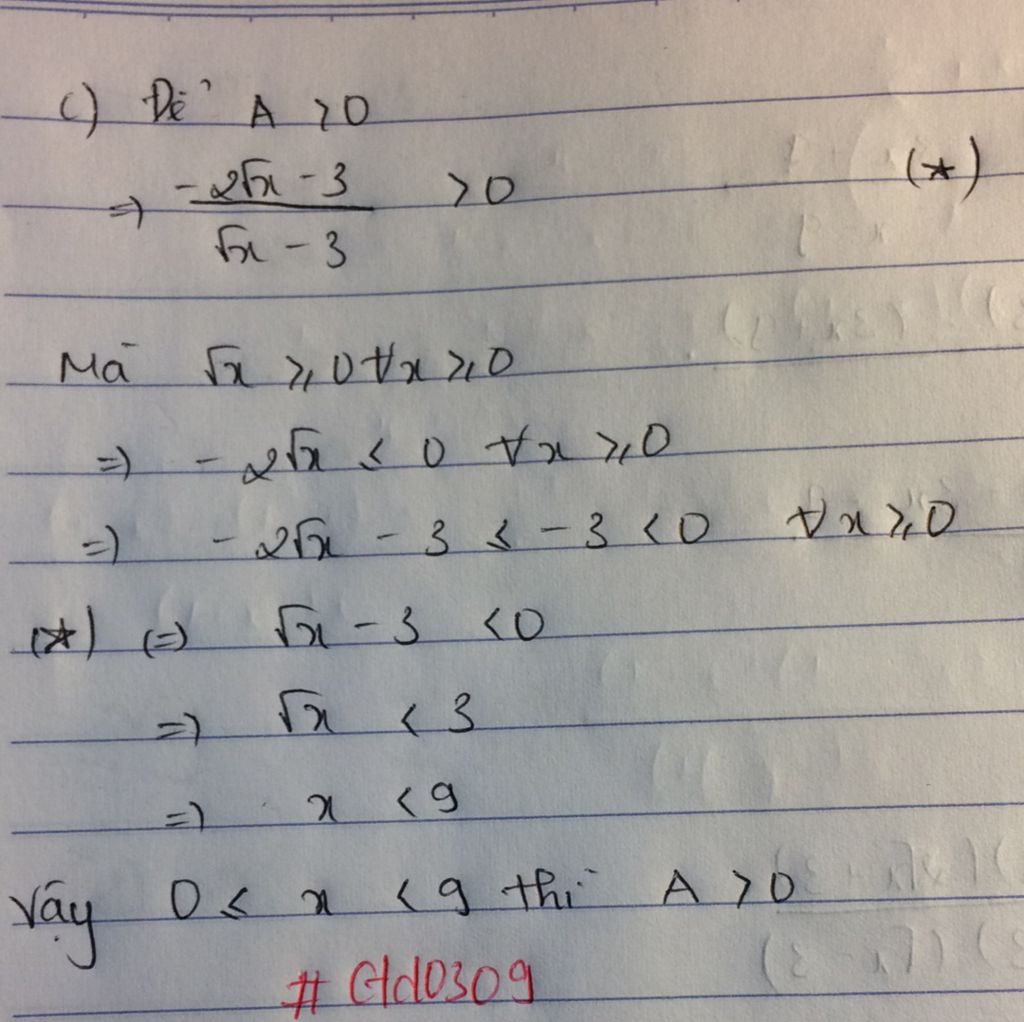 c) Để A > 0
=> (-2√x - 3)/(√x - 3) > 0 (*)
Mà √x ≥ 0 ∀x ≥ 0
=> -2√x ≤ 0 ∀x ≥ 0
=> -2√x - 3 ≤ -3 < 0 ∀x ≥ 0
(*) (=) √x - 3 < 0
=> √x < 3
=> x < 9
Vậy 0 ≤ x < 9 thì A > 0